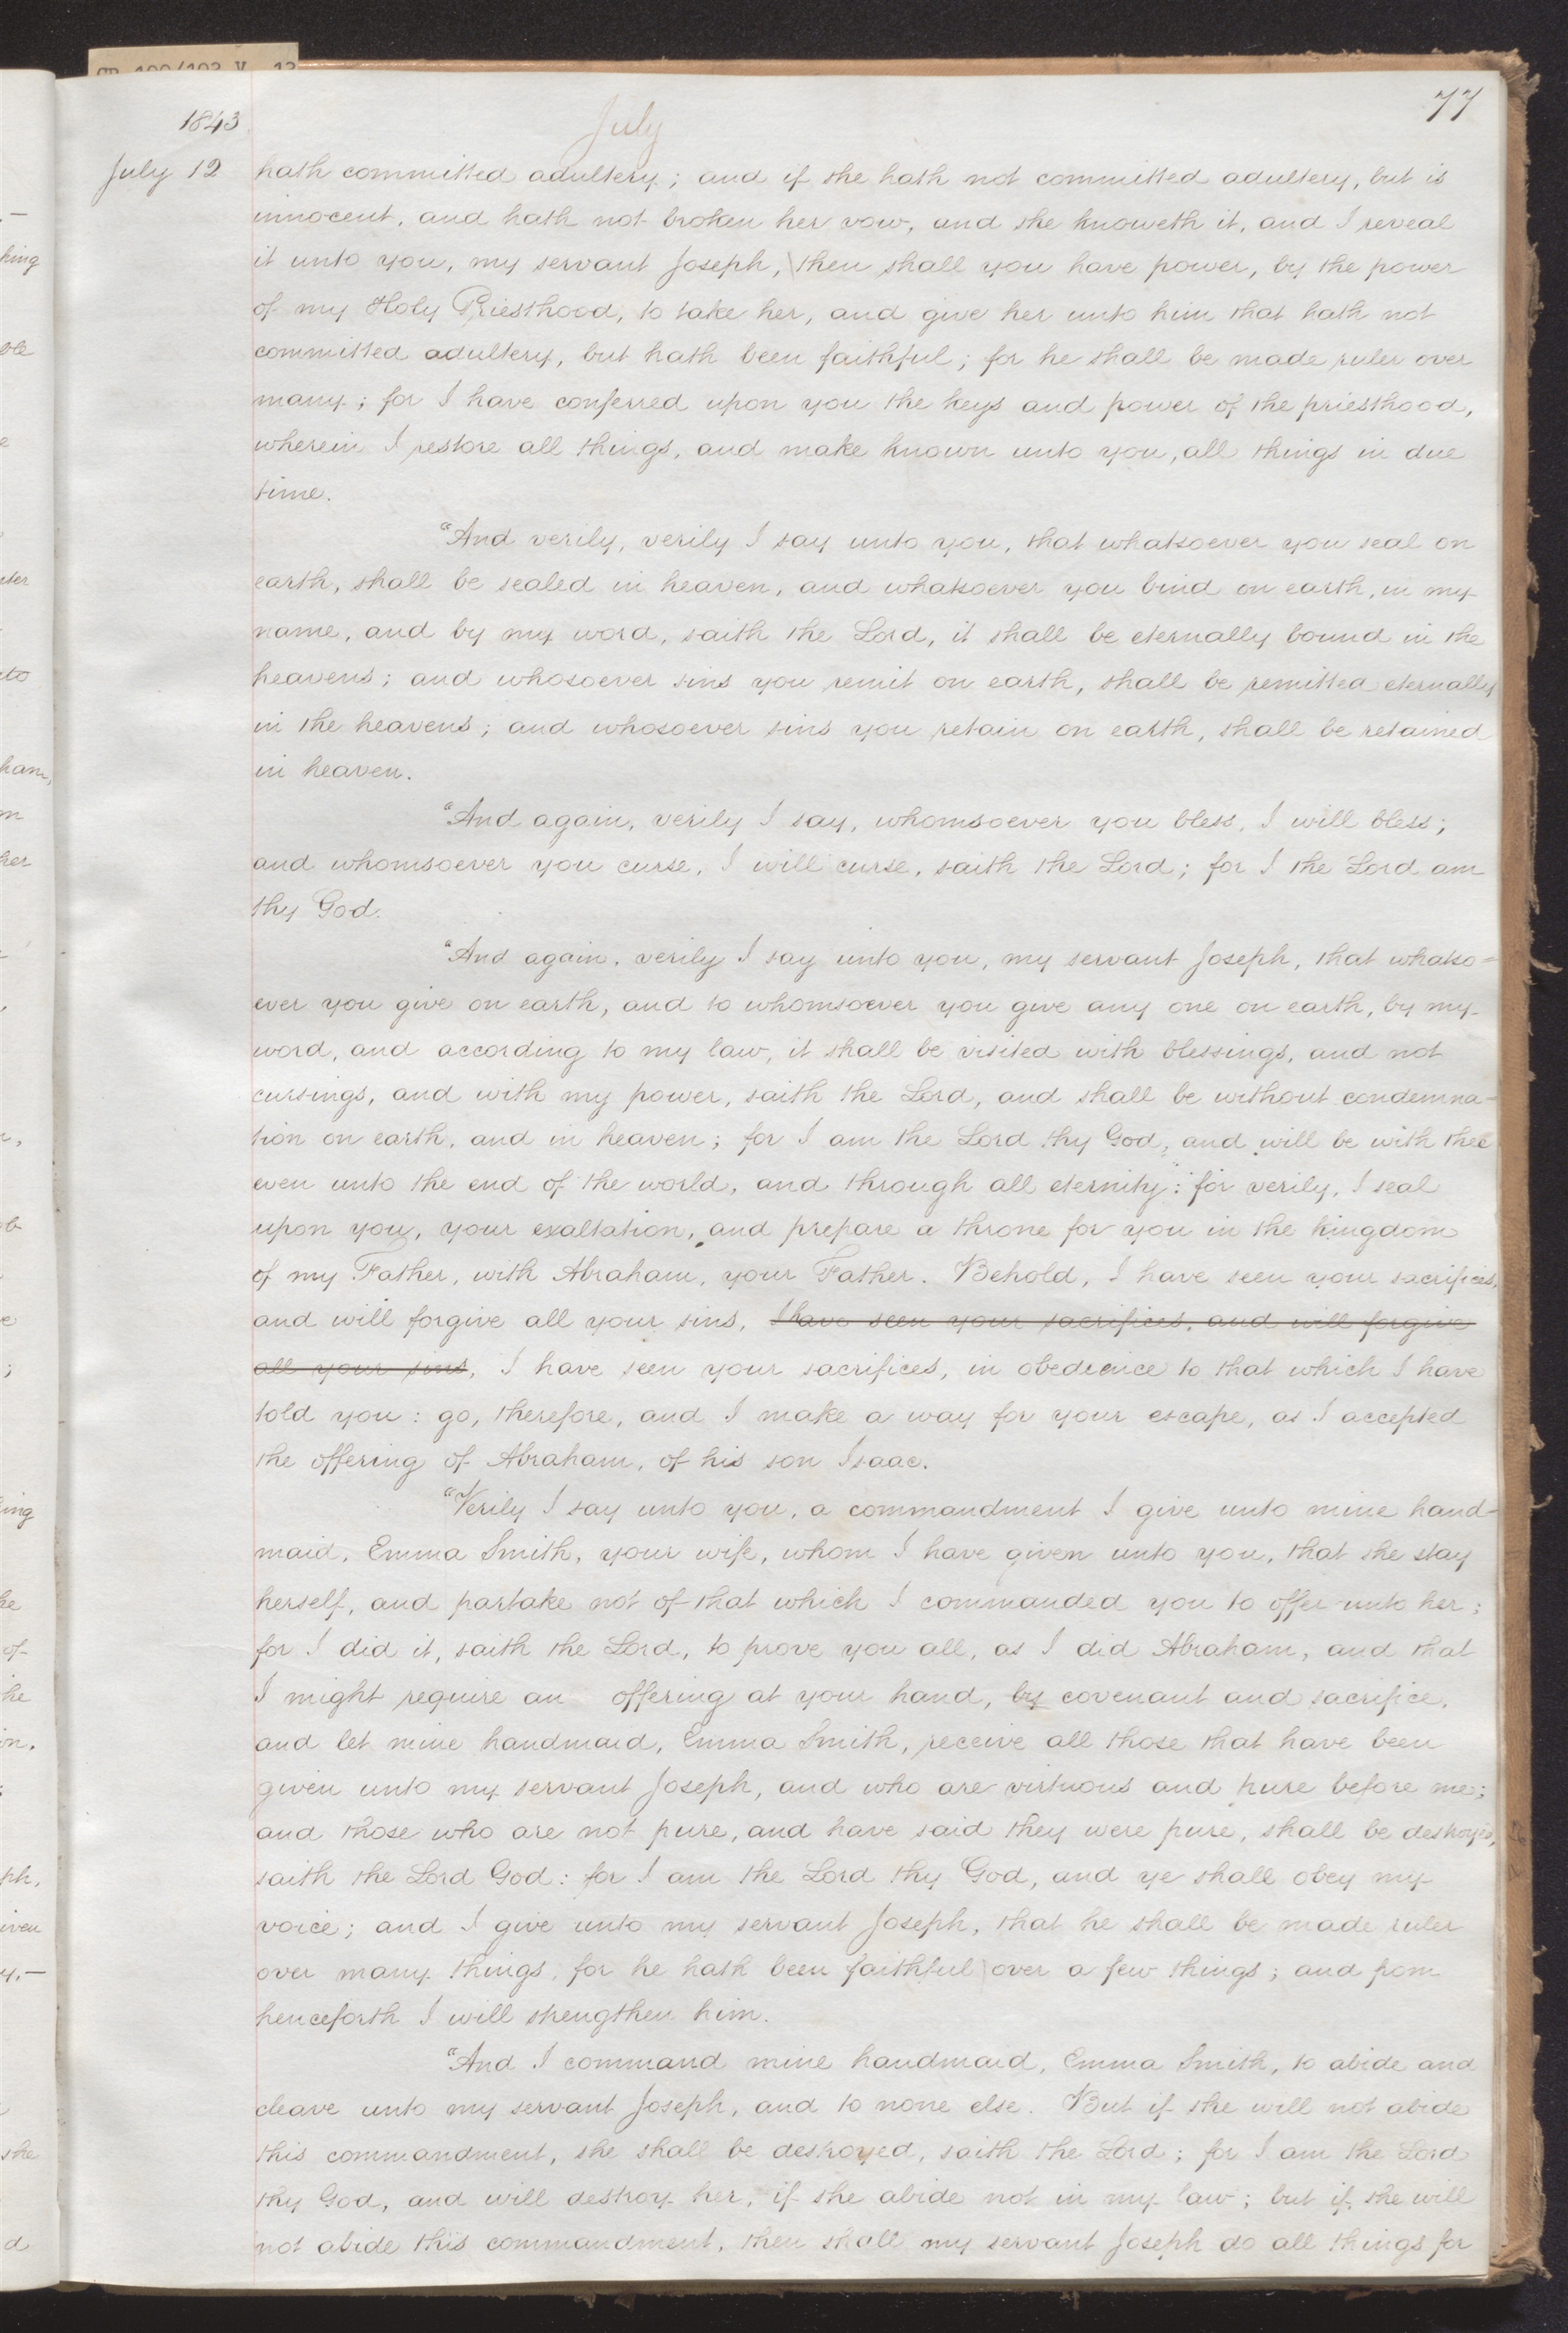 1843
July
77
July 12 hath committed adultery; and if she hath not committed adultery, but is
innocent, and hath not broken her vow, and she knoweth it, and I reveal
it unto you, my servant Joseph, then shall you have power, by the power
of my Holy Priesthood, to take her, and give her unto him that hath not
committed adultery, but hath been faithful; for he shall be made ruler over
many; for I have conferred upon you the keys and power of the priesthood,
wherein I restore all things, and make known unto you, all things in due
time.
"And verily, verily I say unto you, that whatsoever you seal on
earth, shall be sealed in heaven, and whatsoever you bind on earth, in my
name, and by my word, saith the Lord, it shall be eternally bound in the
heavens; and whosoever sins you remit on earth, shall be remitted eternally
in the heavens; and whosoever sins you retain on earth, shall be retained
in heaven.
"And again, verily I say, whomsoever you bless, I will bless;
and whomsoever you curse, I will curse, saith the Lord; for I the Lord am
thy God.
"And again, verily I say unto you, my servant Joseph, that whatso=
ever you give on earth, and to whomsoever you give any one on earth, by my
word, and according to my law, it shall be visited with blessings, and not
cursings, and with my power, saith the Lord, and shall be without condemna=
tion on earth, and in heaven; for I am the Lord thy God, and will be with thee
even unto the end of the world, and through all eternity: for verily, I seal
upon you, your exaltation, and prepare a throne for you in the kingdom
of my Father, with Abraham, your Father. Behold, I have seen your sacrifices,
and will forgive all your sins, I have seen your sacrifices, and will forgive
all your sins, I have seen your sacrifices, in obedience to that which I have
told you: go, therefore, and I make a way for your escape, as I accepted
the offering of Abraham, of his son Isaac.
"Verily I say unto you, a commandment I give unto mine hand-
maid, Emma Smith, your wife, whom I have given unto you, that she stay
herself, and partake not of that which I commanded you to offer unto her;
for I did it, saith the Lord, to prove you all, as I did Abraham, and that
I might require an offering at your hand, by covenant and sacrifice,
and let mine handmaid, Emma Smith, receive all those that have been
given unto my servant Joseph, and who are virtuous and pure before me;
and those who are not pure, and have said they were pure, shall be destroyed,
saith the Lord God: for I am the Lord thy God, and ye shall obey my
voice; and I give unto my servant Joseph, that he shall be made ruler
over many things, for he hath been faithful over a few things; and from
henceforth I will strengthen him.
"And I command mine handmaid, Emma Smith, to abide and
cleave unto my servant Joseph, and to none else. But if she will not abide
this commandment, she shall be destroyed, saith the Lord; for I am the Lord
thy God, and will destroy her, if she abide not in my law; but if she will
not abide this commandment, then shall my servant Joseph do all things for